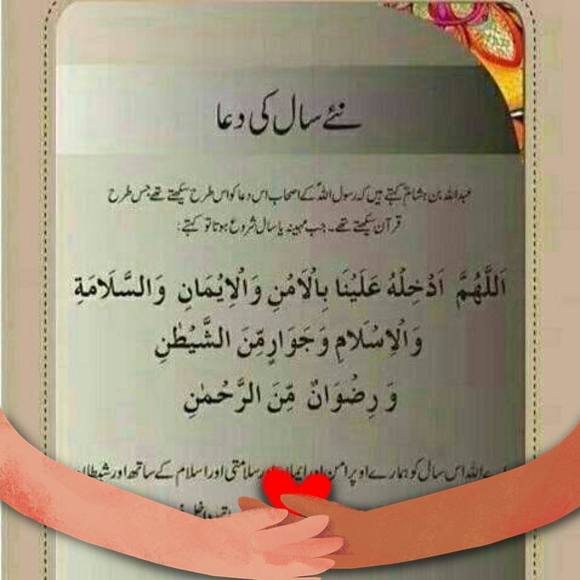 نئے سال کی دعا
عبداللہ بن ہشامؓ کہتے ہیں کہ رسول اللہؐ کے اصحاب اس دعا کو اس طرح سیکھتے تھے جس طرح
قرآن سیکھتے تھے۔ جب مہینہ یا سال شروع ہوتا تو کہتے:
اَللّٰهُمَّ اَدْخِلْهُ عَلَيْنَا بِالْاَمْنِ وَالْاِيْمَانِ وَالسَّلَامَةِ
وَالْاِسْلَامِ وَجَوَارٍ مِّنَ الشَّيْطٰنِ
وَ رِضْوَانٌ مِّنَ الرَّحْمٰنِ
اے اللہ اس سال کو ہمارے اوپر امن اور ایمان اور سلامتی اور اسلام کے ساتھ اور شیطان